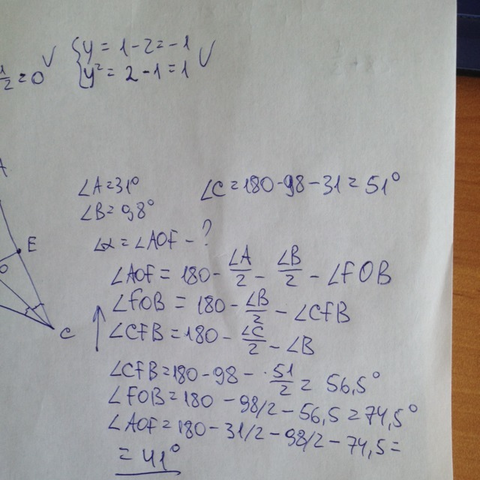 1/2 = 0 √ { y = 1 - 2 = -1
y² = 2 - 1 = 1 √
A
∠A = 31° ∠C = 180 - 98 - 31 = 51°
∠B = 98°
∠α = ∠AOF - ?
E
∠AOF = 180 - ∠A/2 - ∠B/2 - ∠FOB
O
∠FOB = 180 - ∠B/2 - ∠CFB
∠CFB = 180 - ∠C/2 - ∠B
C
∠CFB = 180 - 98 - 51/2 = 56,5°
∠FOB = 180 - 98/2 - 56,5 = 74,5°
∠AOF = 180 - 31/2 - 98/2 - 74,5 =
= 41°